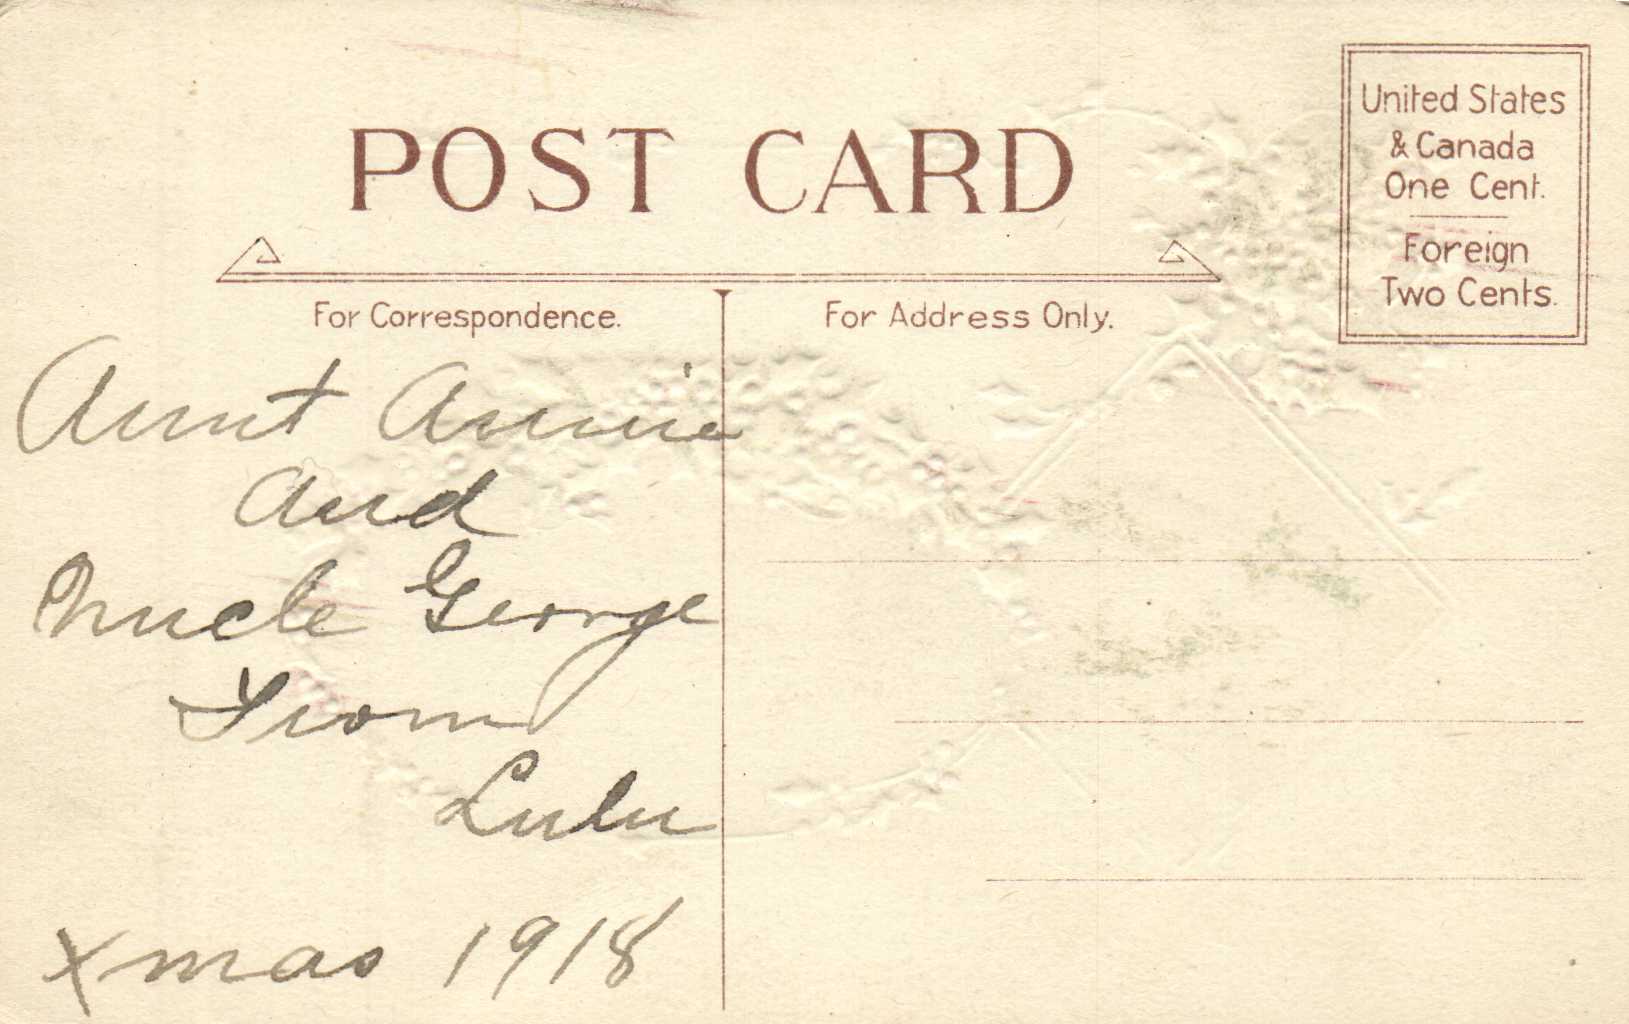 POST CARD
United States
& Canada
One Cent.
Foreign
Two Cents.
For Correspondence.
For Address Only.
Aunt Annie
and
Uncle George
From
Lulu
Xmas 1918